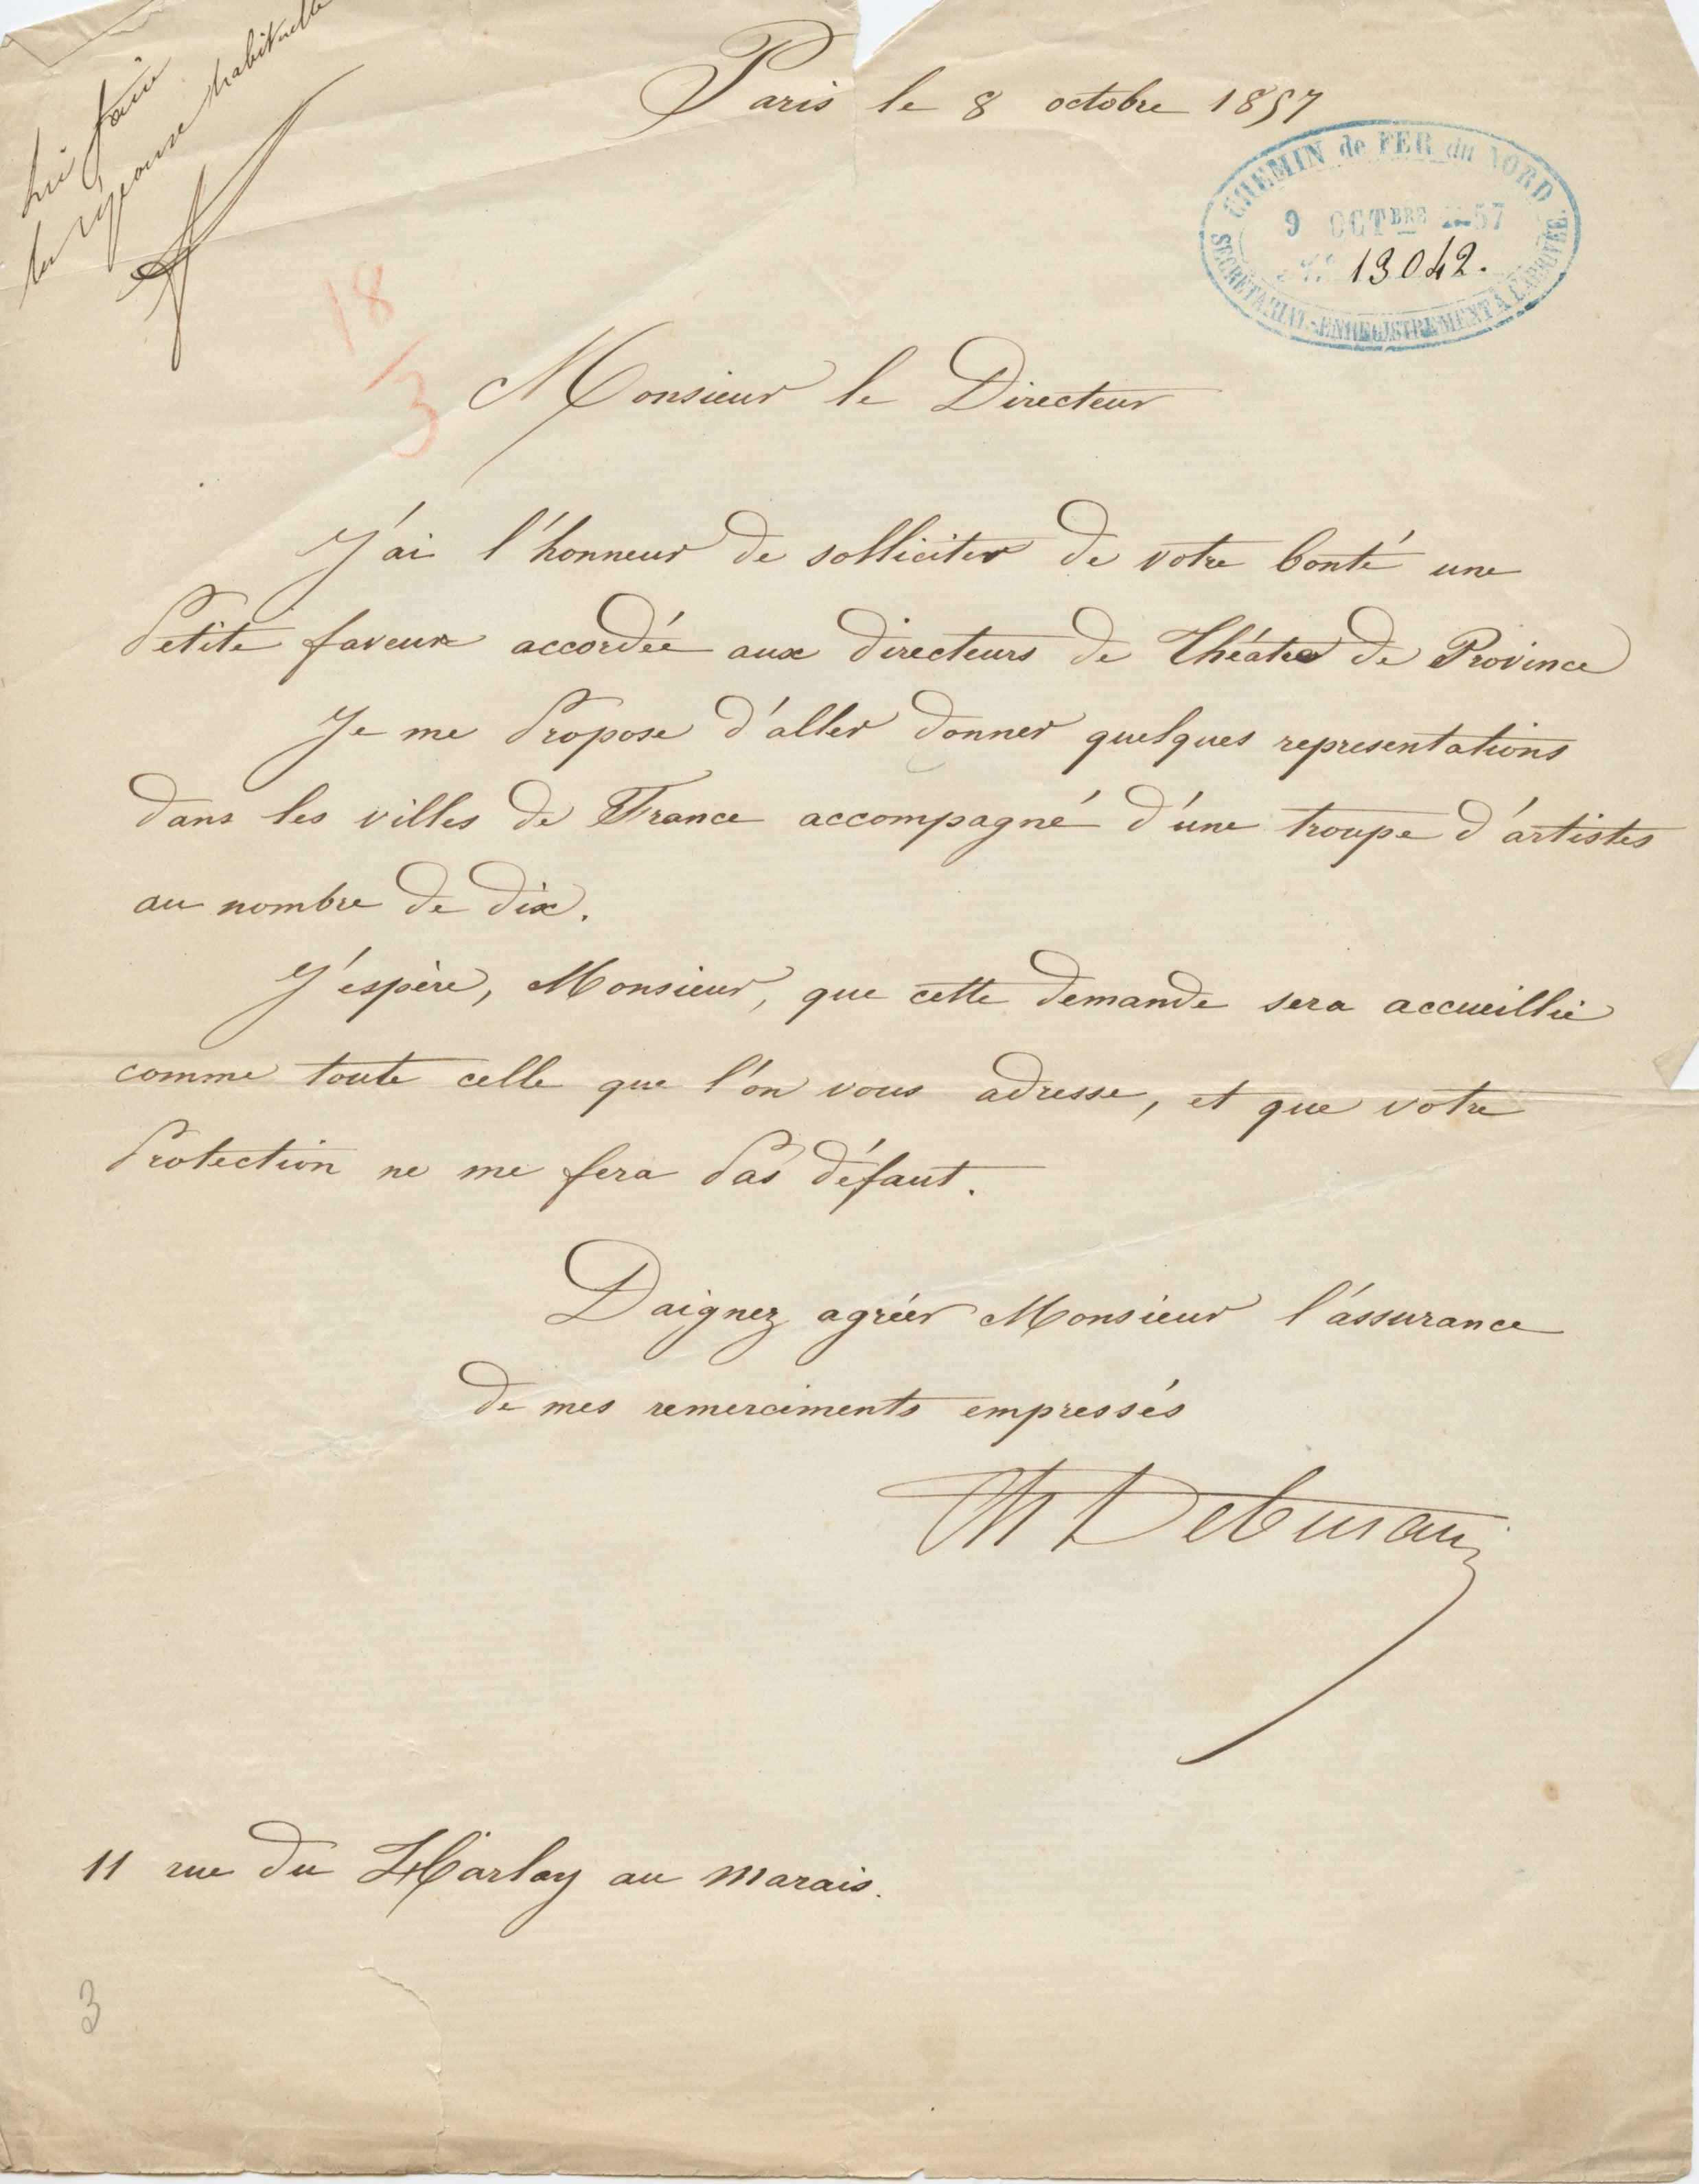 lui faire
la réponse habituelle
Paris le 8 octobre 1857
CHEMIN de FER du NORD
9 OCTBRE 1857
13042.
SECRÉTARIAT-ENREGISTREMENT À L'ARRIVÉE
18
3
Monsieur le Directeur
J'ai l'honneur de solliciter de votre bonté une
Petite faveur accordée aux directeurs de Théatre de Province
Je me Propose d'aller donner quelques representations
dans les villes de France accompagné d'une troupe d'artistes
au nombre de dix.
J'espère, Monsieur, que cette demande sera accueillie
comme toute celle que l'on vous adresse, et que votre
Protection ne me fera Pas défaut.
Daignez agréer Monsieur l'assurance
de mes remerciments empressés
Ch Deburau
11 rue du Harlay au marais.
3